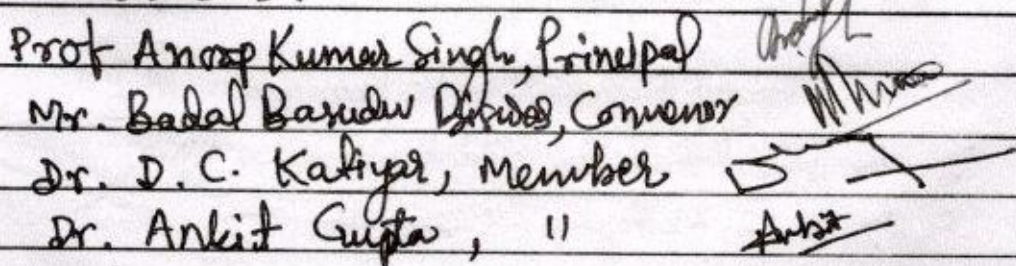 Prof Anoop Kumar Singh, Principal
Mr. Badal Basudev Biswas, Convenor
Dr. D. C. Katiyar, Member
Dr. Ankit Gupta, " Ankit